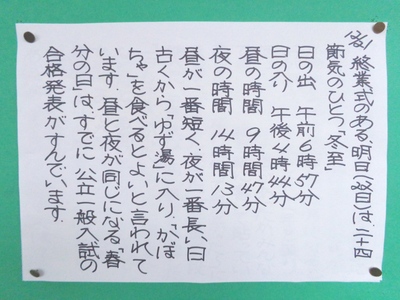 12/21 終業式のある、明日(22日)は、二十四
節気のひとつ「冬至」
日の出 午前6時57分
日の入り 午後4時44分
昼の時間 9時間47分
夜の時間 14時間13分
昼が一番短く、夜が一番長い日
古くから「ゆず湯」に入り、「かぼ
ちゃ」を食べるとよいと言われて
います。昼と夜が同じになる「春
分の日」は、すでに公立一般入試の
合格発表がすんでいます。